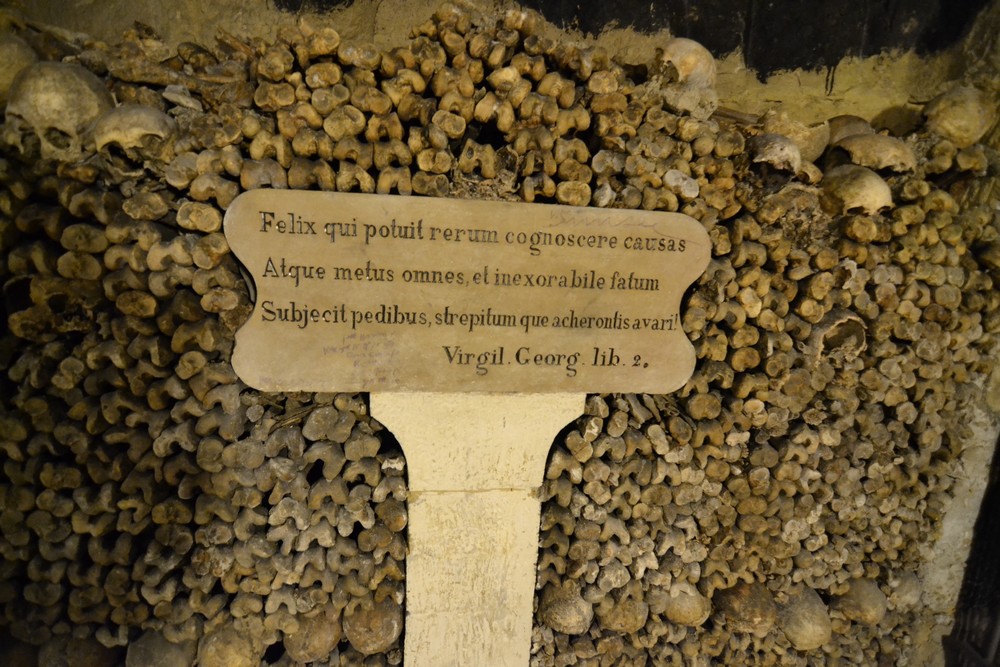 Felix qui potuit rerum cognoscere causas
Atque metus omnes, et inexorabile fatum
Subjecit pedibus, strepitum que acherontis avari!
Virgil. Georg. lib. 2.